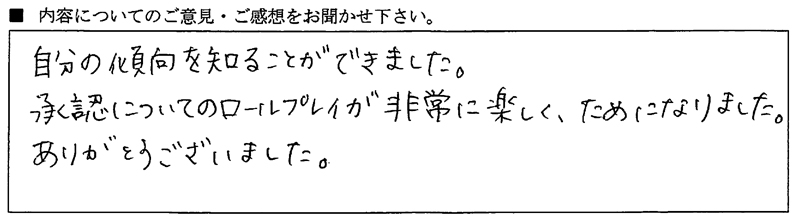 ■ 内容についてのご意見・ご感想をお聞かせ下さい。
自分の傾向を知ることができました。
承認についてのロールプレイが非常に楽しく、ためになりました。
ありがとうございました。